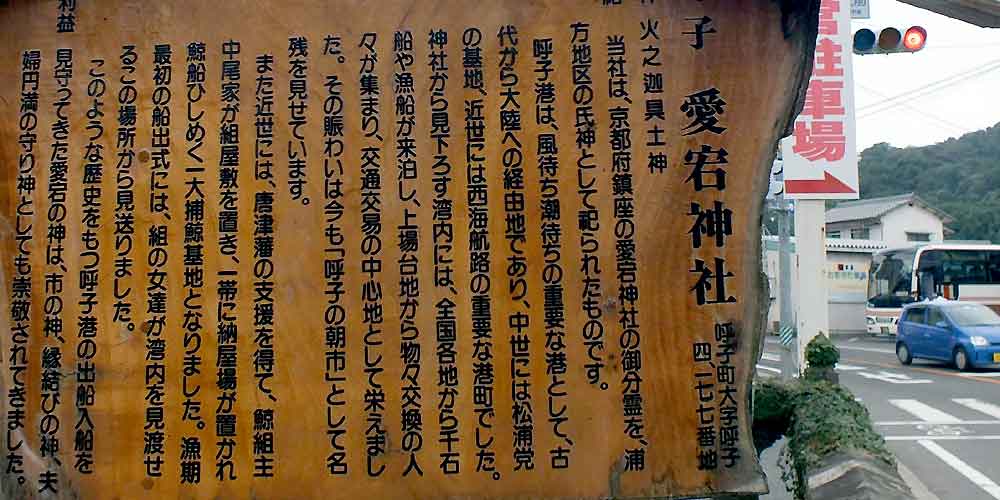 子 愛宕神社
呼子町大字呼子
四、一七七番地
火之迦具土神
当社は、京都府鎮座の愛宕神社の御分霊を、浦
方地区の氏神として祀られたものです。
呼子港は、風待ち潮待ちの重要な港として、古
代から大陸への経由地であり、中世には松浦党
の基地、近世には西海航路の重要な港町でした。
神社から見下ろす湾内には、全国各地から千石
船や漁船が来泊し、上場台地から物々交換の人
々が集まり、交通交易の中心地として栄えまし
た。その賑わいは今も「呼子の朝市」として名
残を見せています。
また近世には、唐津藩の支援を得て、鯨組主
中尾家が組屋敷を置き、一帯に納屋場が置かれ
鯨船ひしめく一大捕鯨基地となりました。漁期
最初の船出式には、組の女達が湾内を見渡せ
るこの場所から見送りました。
このような歴史をもつ呼子港の出船入船を
利益
見守ってきた愛宕の神は、市の神、縁結びの神、夫
婦円満の守り神としても崇敬されてきました。
営駐車場